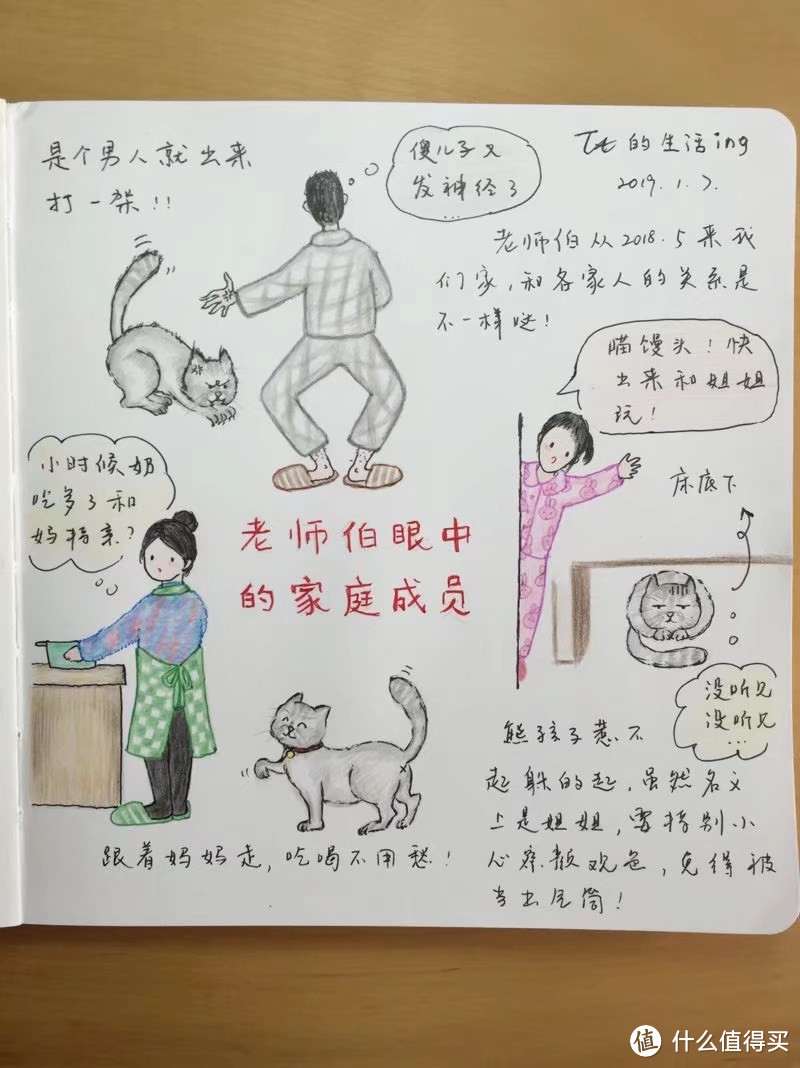 是个男人就出来
打一架!!
傻儿子又
发神经了
...
Tt的生活ing
2019.1.7.
老师伯从2018.5来我
们家,和各家人的关系是
不一样哒!
喵馒头!快
出来和姐姐
玩!
床底下
小时候奶
吃多了和
妈特亲?
老师伯眼中
的家庭成员
没听见
没听见
...
熊孩子惹不
起躲的起,虽然名义
上是姐姐,要特别小
心察颜观色,免得被
当出气筒!
跟着妈妈走,吃喝不用愁!
值 什么值得买